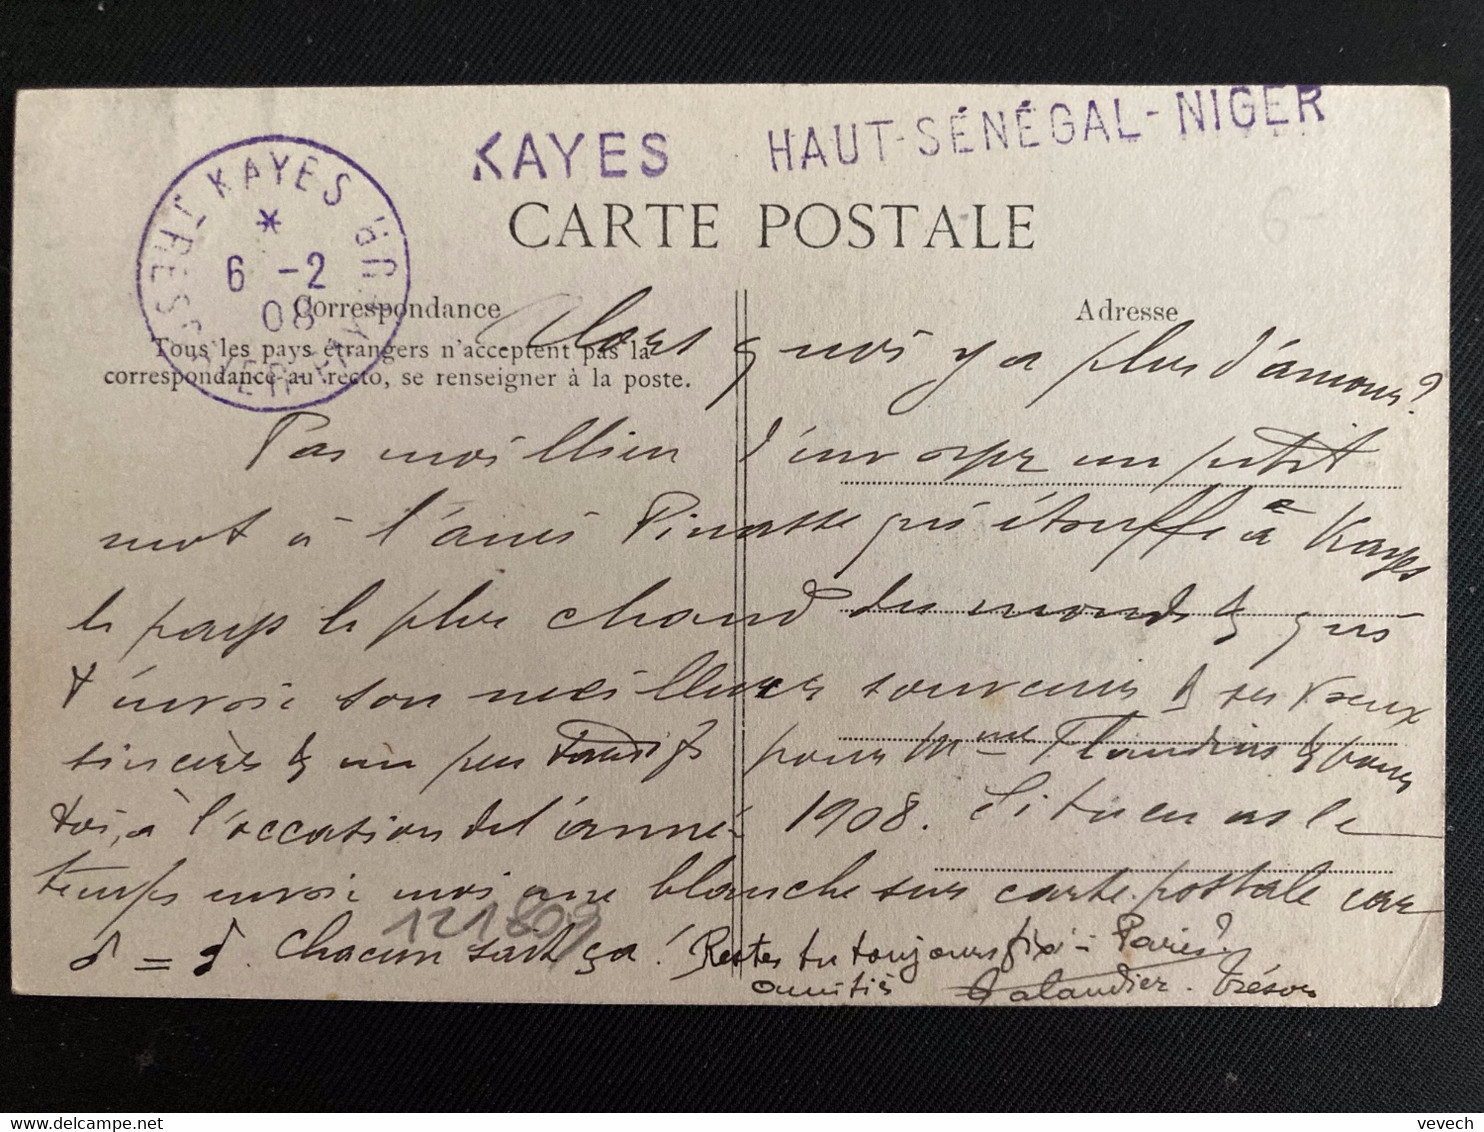 KAYES HAUT-SÉNÉGAL-NIGER
KAYES
*
6 -2
08
CARTE POSTALE
Correspondance
Adresse
Tous les pays étrangers n'acceptent pas la
correspondance au recto, se renseigner à la poste.
Alors quoi y a plus d'amour?
Pas moillien d'envoyer un petit
mot à l'ami Pinasse qui étouffe à Kayes
le pays le plus chaud du monde & qui
t'envoie son meilleur souvenir & ses vœux
sincères & un peu tardifs pour Mme Flandrin & pour
toi, à l'occasion de l'année 1908. Si tu en as le
temps envoie moi une blanche sur carte postale car
♩ = ♪. Chacun sait ça! Restes tu toujours fixé à Paris?
amitiés Galandier. Trésor
121809
6-
vevech